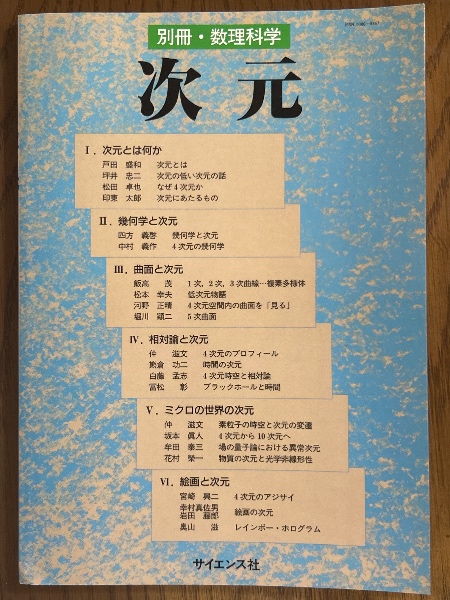 別冊・数理科学
次元
I．次元とは何か
戸田 盛和 次元とは
坪井 忠二 次元の低い次元の話
松田 卓也 なぜ4次元か
印東 太郎 次元にあたるもの
II．幾何学と次元
四方 義啓 幾何学と次元
中村 義作 4次元の幾何学
III．曲面と次元
飯高 茂 1次，2次，3次曲線…複素多様体
松本 幸夫 低次元物語
河野 正晴 4次元空間内の曲面を「見る」
堀川 穎二 5次曲面
IV．相対論と次元
仲 滋文 4次元のプロフィール
熊倉 功二 時間の次元
白藤 孟志 4次元時空と相対論
冨松 彰 ブラックホールと時間
V．ミクロの世界の次元
仲 滋文 素粒子の時空と次元の変遷
坂本 眞人 4次元から10次元へ
牟田 泰三 場の量子論における異常次元
花村 榮一 物質の次元と光学非線形性
VI．絵画と次元
宮崎 興二 4次元のアジサイ
幸村真佐男
岩田 藤郎 絵画の次元
奥山 滋 レインボー・ホログラム
サイエンス社